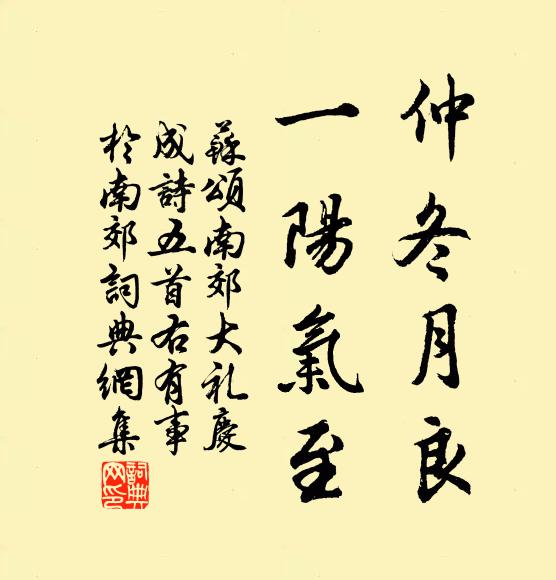 仲冬月良
一陽氣至
蘇頌南郊大礼慶
成詩五首右有事
於南郊詞典網集
詞典
网印